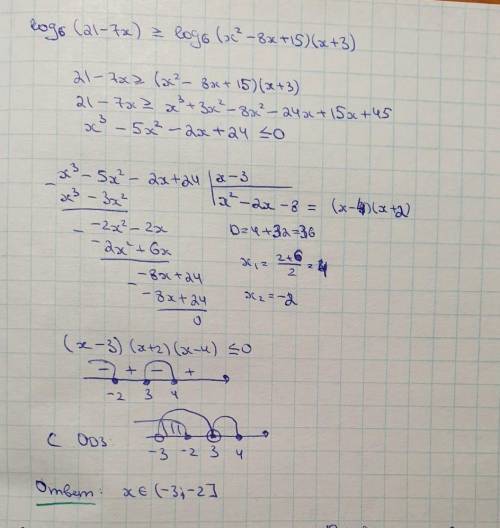 log₆ (21-7x) ≥ log₆ (x² -8x+15)(x+3)
21-7x ≥ (x² - 8x+15)(x+3)
21-7x ≥ x³+3x²-8x²-24x+15x+45
x³ - 5x² -2x +24 ≤0
- x³-5x²-2x+24 | x-3
x³ - 3x² | x²-2x-8 = (x-4)(x+2)
- -2x²-2x D=4+32=36
-2x²+6x x₁ = (2+6)/2 = 4
- -8x+24
-8x+24 x₂ = -2
0
(x-3)(x+2)(x-4) ≤0
- + - +
-2 3 4
С ОДЗ:
-3 -2 3 4
Ответ: x∈(-3;-2]